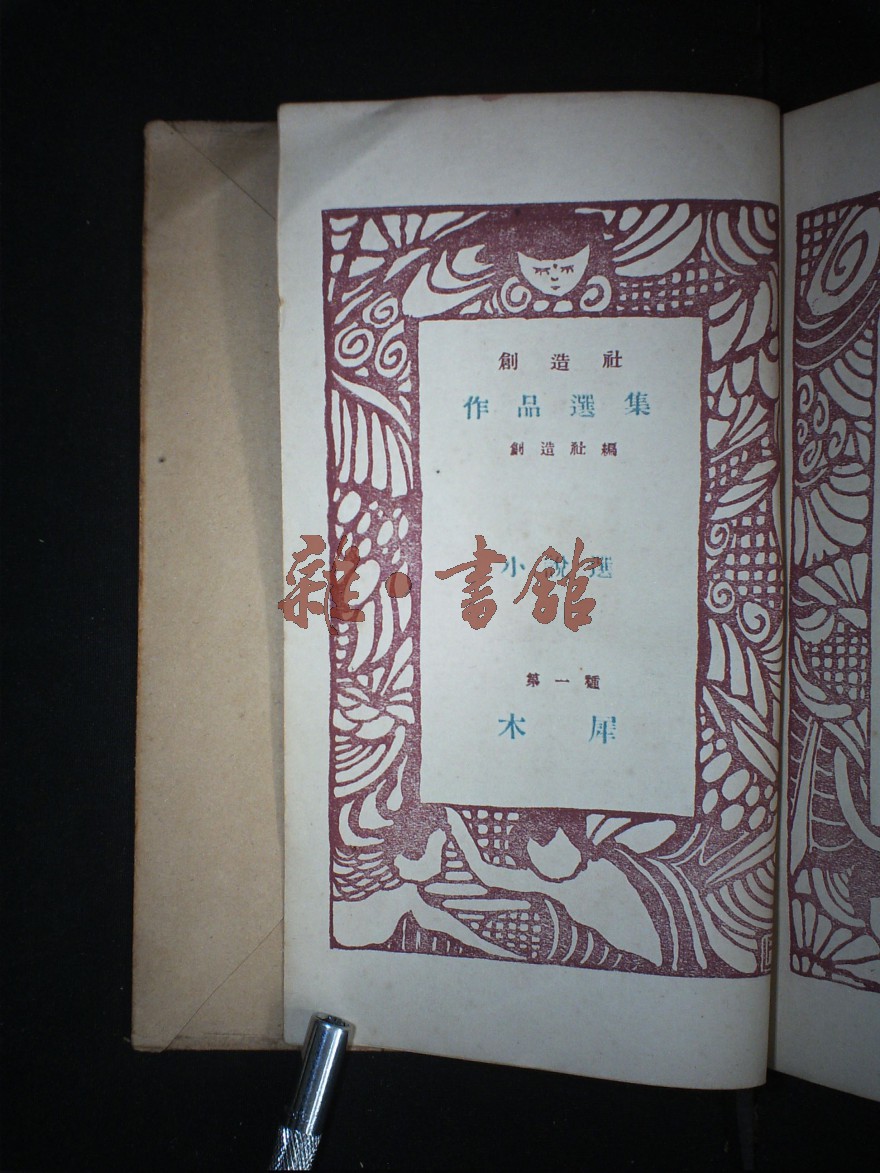 創造社
作品選集
創造社編
小說選
雜·書館
第一種
木犀